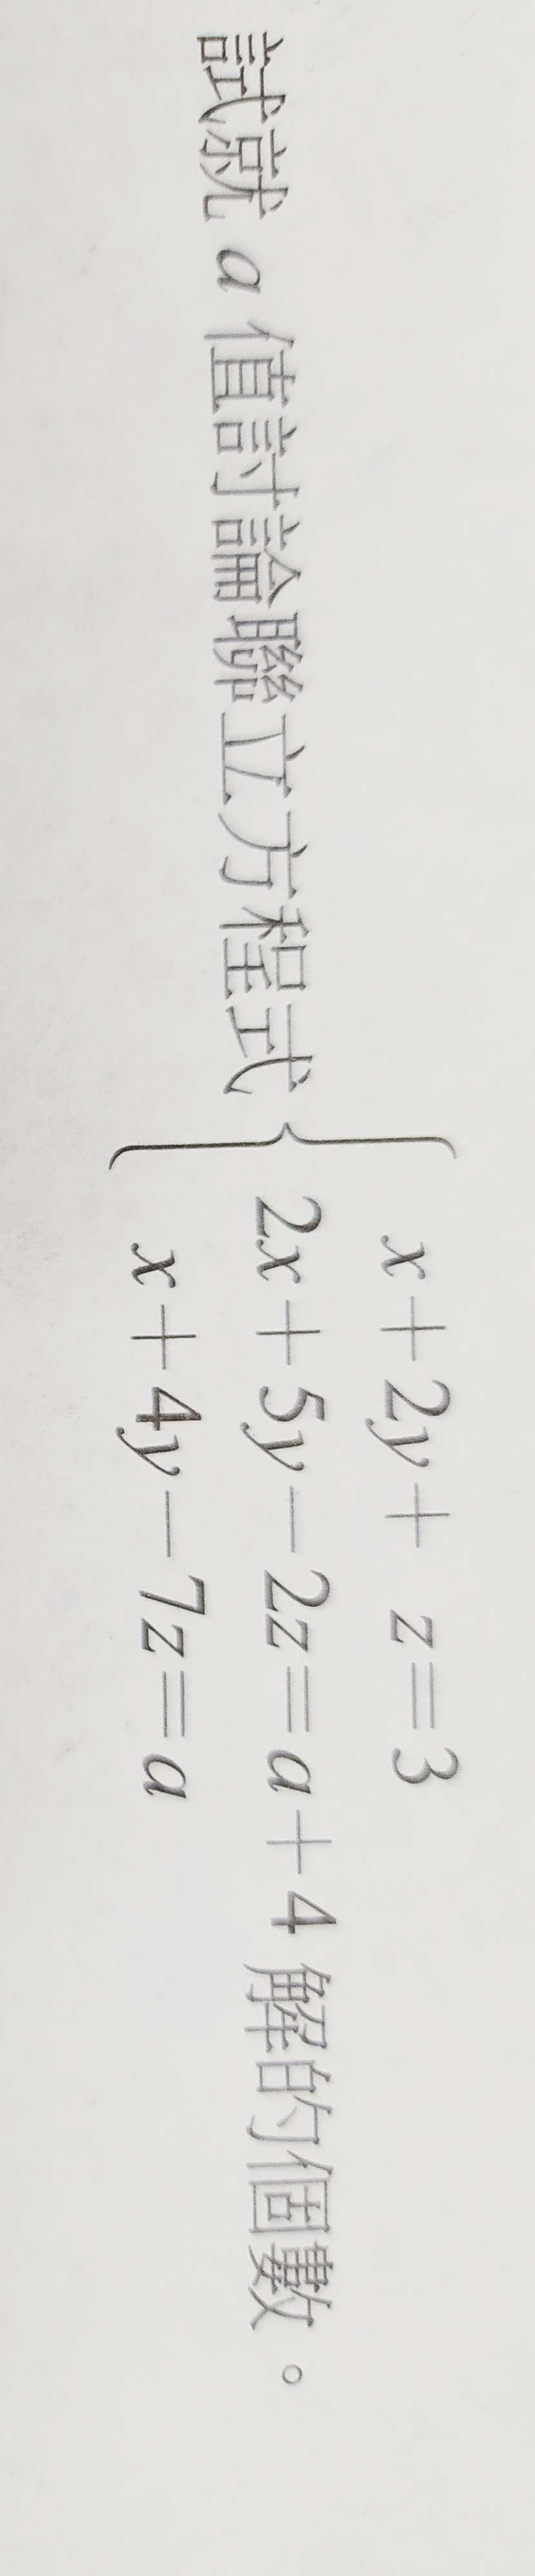 x+2y+ z=3
試就 a 值討論聯立方程式{ 2x+5y−2z=a+4 解的個數。
x+4y−7z=a